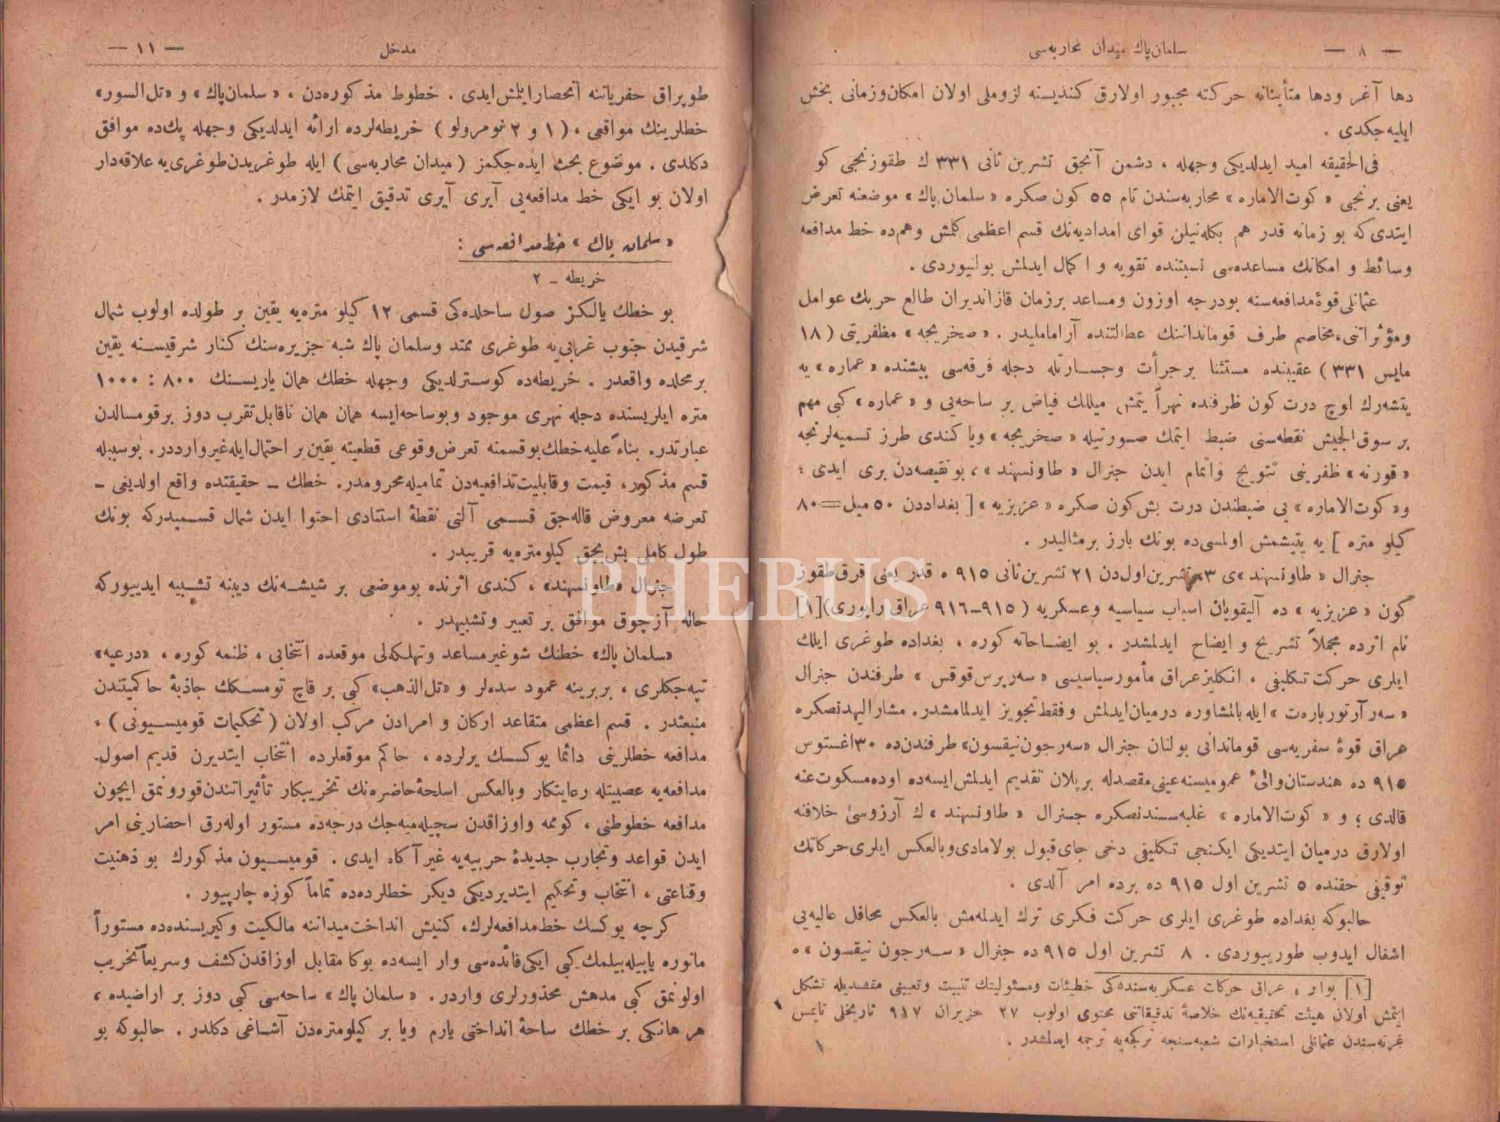 — ٨ —
سلمان‌پاك ميدان محاربه‌سى
دها آغر ودها متأنيانه حركته مجبور اولارق كنديسنه لزوملى اولان امكان‌وزمانى بخش
ايليه‌جكدى .
فى‌الحقيقه اميد ايدلديكى وجهله ، دشمن آنجق تشرين ثانى ٣٣١ ك طقوزنجى كو
يعنى برنجى « كوت‌الاماره » محاربه‌سندن تام ٥٥ كون صكره « سلمان پاك » موضعنه تعرض
ايتدى‌كه بو زمانه قدر هم بكله‌نيلن قواى امداديه‌نك قسم اعظمى كلمش وهم‌ده خط مدافعه
وسائط و امكانك مساعده‌سى نسبتنده تقويه و اكمال ايدلمش بولنيوردى .
عثمانلى قوهٔ مدافعه‌سنه بودرجه اوزون ومساعد برزمان قازانديران طالع حربك عوامل
ومؤثراتنى،مخاصم طرف قوماندانلرينك عطالتنده آرامامليدر . « صخريجه » مظفريتى (١٨
مايس ٣٣١) عقيبنده مستثنا برجرأت وجسارتله دجله فرقه‌سى پيشنده « عماره » يه
يتشه‌رك اوچ درت كون ظرفنده نهراً يتمش ميللك فياض بر ساحه‌يى و « عماره » كبى مهم
بر سوق‌الجيش نقطه‌سنى ضبط ايتمك صورتيله « صخريجه » ويا كندى طرز تسميه‌لرنجه
« قورنه » ظفرينى تتويج واتمام ايدن جنرال « طاونسهند » ، بونقيصه‌دن برى ايدى ؛
و« كوت‌الاماره » يى ضبطندن درت بش‌كون صكره « عزيزيه » [ بغداددن ٥٠ ميل=٨٠
كيلو متره ] يه يتيشمش اولمسى‌ده بونك بارز برمثاليدر .
جنرال « طاونسهند »ى ٣ تشرين‌اول‌دن ٢١ تشرين‌ثانى ٩١٥ ه قدر يعنى قرق‌طقوز
كون « عزيزيه » ده آليقويان اسباب سياسيه وعسكريه ( ٩١٥-٩١٦ عراق راپورى)[١]
نام اثرده مجملاً تشريح و ايضاح ايدلمشدر . بو ايضاحاته كوره ، بغداده طوغرى ايلك
ايلرى حركت تكليفى ، انكليزعراق مأمورسياسيسى « سه‌ر پرس‌قوقس » طرفندن جنرال
« سه‌ر آرتور بارەت » ايله بالمشاوره درميان‌ايدلمش وفقط تجويز ايدلمامشدر. مشاراليهدنصكره
عراق قوهٔ سفريه‌سى قوماندانى بولنان جنرال «سه‌رجون‌نيقسون» طرفندن‌ده ٣٠اغستوس
٩١٥ ده هندستان‌والئ عموميسنه‌عينى‌مقصدله برپلان تقديم ايدلمش‌ايسه‌ده اوده‌مسكوت‌عنه
قالدى ؛ و « كوت‌الاماره » غلبه‌سندنصكره جنرال « طاونسهند » ك آرزوسى خلافنه
اولارق درميان ايتديكى ايكنجى تكليفى دخى جاى‌قبول بولامادى‌وبالعكس ايلرى‌حركاتك
توقيفى حقنده ٥ تشرين اول ٩١٥ ده برده امر آلدى .
حالبوكه بغداده طوغرى ايلرى حركت فكرى ترك ايدلمه‌مش بالعكس محافل عاليه‌يى
اشغال ايدوب طورييوردى . ٨ تشرين اول ٩١٥ ده جنرال « سه‌رجون نيقسون » ه
[١] بواثر ، عراق حركات عسكريه‌سنده‌كى خطيئات ومسئوليتك تثبيت وتعيينى مقصديله تشكل
ايتمش اولان هيئت تحقيقيه‌نك خلاصهٔ تدقيقاتنى محتوى اولوب ٢٧ حزيران ٩١٧ تاريخلى تايمس
غزته‌سندن عثمانلى استخبارات شعبه‌سنجه تركجه‌يه ترجمه ايدلمشدر .
مدخل
— ١١ —
طوپراق حفرياتنه آنحصارايلمش‌ايدى . خطوط مذكوره‌دن ، « سلمان‌پاك » و «تل‌السور»
خطلرينك مواقعى ، (١ و ٢ نومرولو ) خريطه‌لرده ارائه ايدلديكى وجهله پك‌ده موافق
دكلدى . موضوع بحث ايده‌جكمز ( ميدان محاربه‌سى ) ايله طوغريدن‌طوغرى‌يه علاقه‌دار
اولان بو ايكى خط مدافعه‌يى آيرى آيرى تدقيق ايتمك لازمدر .
« سلمان پاك » خط‌مدافعه‌سى :
خريطه - ٢
بو خطك يالكز صول ساحلده‌كى قسمى ١٢ كيلو متره‌يه يقين بر طولده اولوب شمال
شرقيدن جنوب غربى‌يه طوغرى ممتد وسلمان پاك شبه جزيره‌سنك كنار شرقيسنه يقين
برمحلده واقعدر . خريطه‌ده كوسترلديكى وجهله خطك همان ياريسنك ٨٠٠ : ١٠٠٠
متره ايلريسنده دجله نهرى موجود وبوساحه‌ايسه همان همان ناقابل‌تقرب دوز برقومسالدن
عبارتدر. بناءً عليه‌خطك‌بوقسمنه تعرض‌وقوعى قطعيته يقين‌بر احتمال‌ايله‌غيرواردر. بوسببله
قسم مذكور، قيمت وقابليت‌تدافعيه‌دن تماميله‌محرومدر. خطك – حقيقتده واقع اولديغى –
تعرضه معروض قاله‌جق قسمى آلتى نقطهٔ استنادى احتوا ايدن شمال قسميدركه بونك
طول كاملى بش‌بچق كيلومتره‌يه قريبدر .
جنرال «طاونسهند» ، كندى اثرنده بوموضعى بر شيشه‌نك ديبنه تشبيه ايدييوركه
حاله آزچوق موافق بر تعبير وتشبيهدر .
«سلمان پاك» خطنك شوغيرمساعد وتهلكه‌لى موقعده انتخابى ، ظنمه كوره ، «درعيه»
تپه‌جكلرى ، بربرينه عمود سده‌لر و «تل‌الذهب» كبى بر قاچ تومسكك جاذبهٔ حاكميتندن
منبعثدر . قسم اعظمى متقاعد اركان و امرادن مركب اولان (تحكيمات قوميسيونى) ،
مدافعه خطلرينى دائما يوكسك يرلرده ، حاكم موقعلرده انتخاب ايتديرن قديم اصول‌
مدافعه‌يه عصبيتله رعايتكار وبالعكس اسلحهٔ‌حاضره‌نك تخريبكار تأثيراتندن‌قورونمق ايچون
مدافعه خطوطنى ، كومه واوزاقدن سچيله‌ميه‌جك درجه‌ده مستور اوله‌رق احضارينى امر
ايدن قواعد وتجارب جديدهٔ حربيه‌يه غيرآكاه ايدى . قوميسيون مذكورك بو ذهنيت
وقناعتى ، انتخاب وتحكيم ايتديرديكى ديكر خطلرده‌ده تماماً كوزه چارپييور .
كرچه يوكسك خط‌مدافعه‌لرك، كنيش انداخت‌ميداننه مالكيت وكيريسنده‌ده مستوراً
مانوره ياپيله‌بيلمك كبى ايكى‌فائده‌سى وار ايسه‌ده بوكا مقابل اوزاقدن‌كشف وسريعاً‌تخريب
اولونمق كبى مدهش محذورلرى واردر . «سلمان پاك» ساحه‌سى كبى دوز بر اراضيده ،
هر هانكى بر خطك ساحهٔ انداختى يارم ويا بر كيلومتره‌دن آشاغى دكلدر . حالبوكه بو
PHEBUS